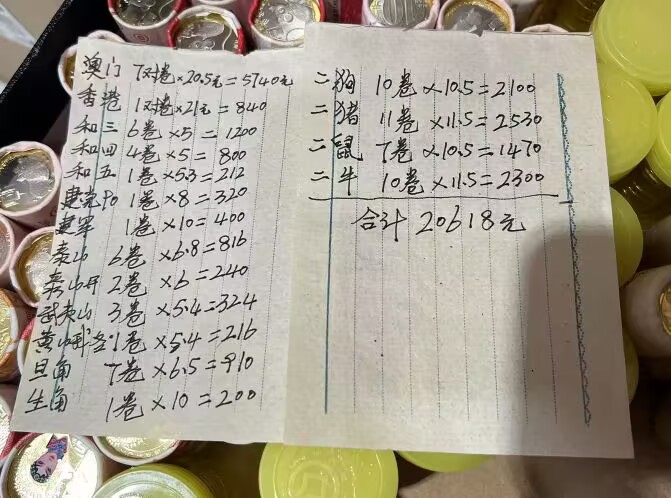 澳门 7对卷×20.5元=5740元
香港 1对卷×21元=840
和三 6卷×5=1200
和四 4卷×5=800
和五 1卷×5.3=212
建党 1卷×8=320
建军 1卷×10=400
泰山 6卷×6.8=816
泰山 2卷×6=240
武夷山 3卷×5.4=324
黄山 1卷×5.4=216
旦角 7卷×6.5=910
生角 1卷×10=200
二狗 10卷×10.5=2100
二猪 11卷×11.5=2530
二鼠 7卷×10.5=1470
二牛 10卷×11.5=2300
合计 20618元